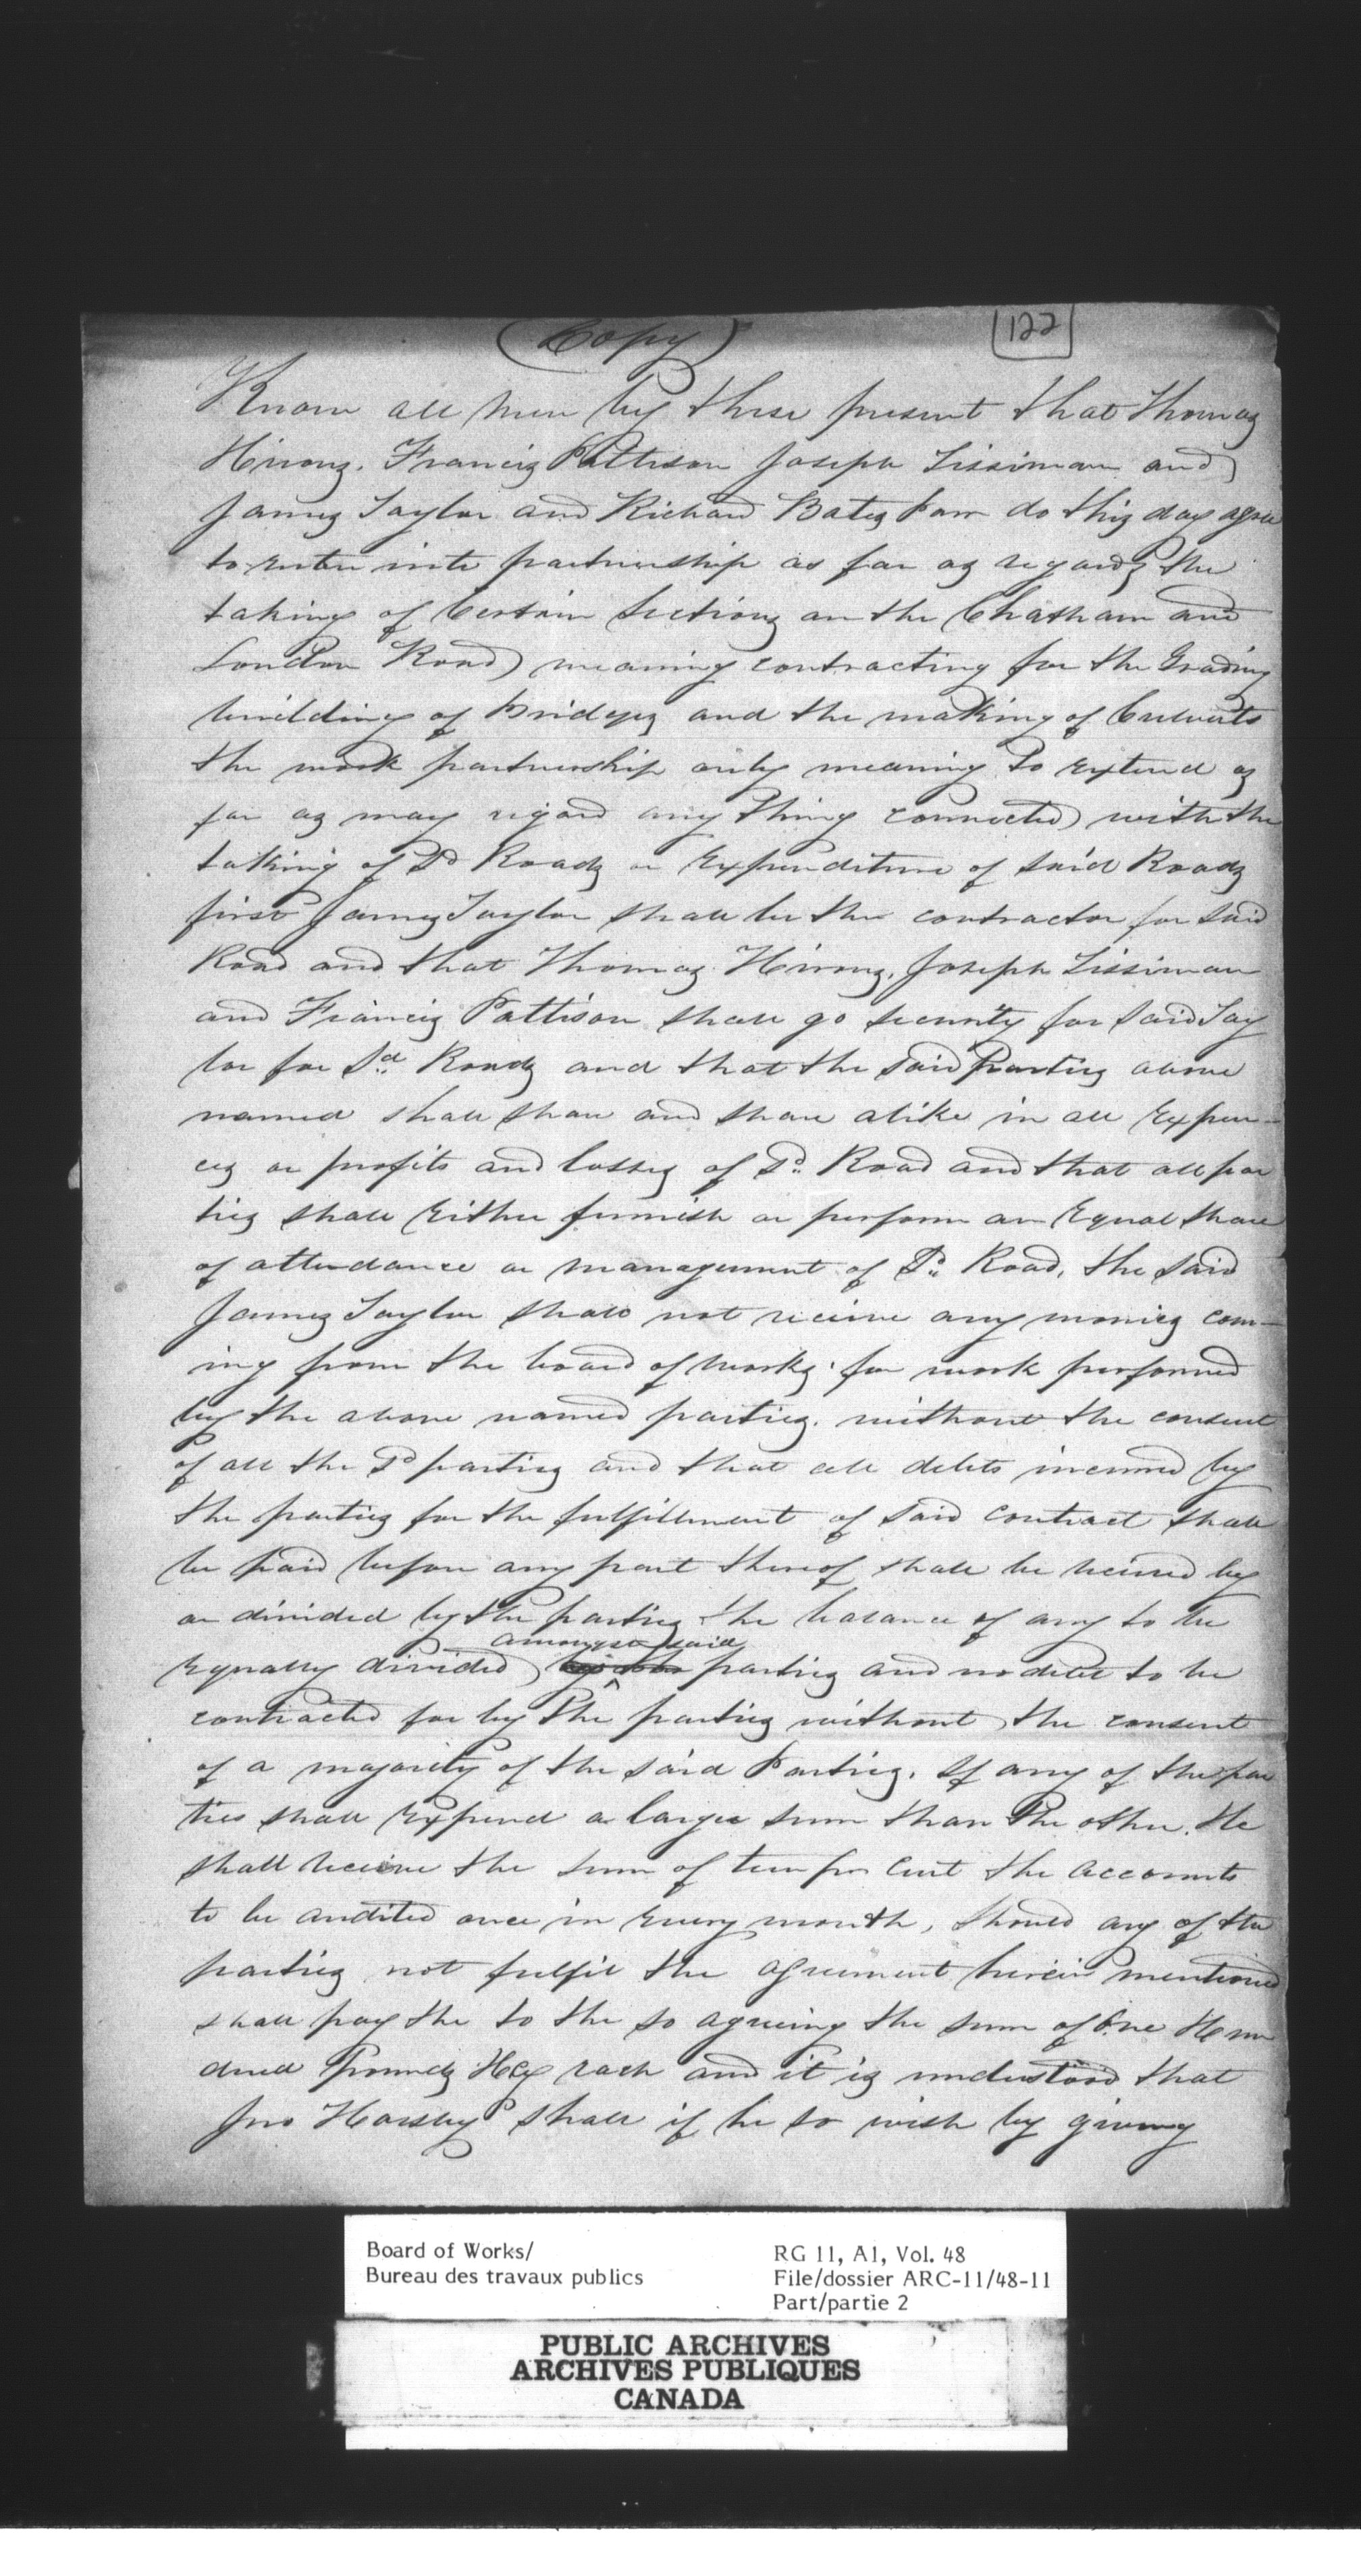 (Copy)
122
Know all men by these present that Thomas
Hirons. Francis Pattison Joseph Lissiman and
James Taylor and Richard Bates Parr do this day agree
to enter into partnership as far as regards the
taking of Certain Sections on the Chatham and
London Road meaning contracting for the Grading
building of Bridges and the making of Culverts
the work partnership only meaning to extend as
far as may regard any thing connected with the
taking of Sd Roads or Expenditure of said Roads
first James Taylor shall be the contractor for said
Road and that Thomas Hirons. Joseph Lissiman
and Francis Pattison shall go security for said Tay
lor for Sd Roads and that the said Parties above
named shall share and share alike in all Expen-
ces or profits and losses of Sd Road and that all par
ties shall Either furnish or perform an Equal share
of attendance or management of Sd Road, the said
James Taylor shall not receive any monies com-
ing from the board of works for work performed
by the above named parties. without the consent
of all the Sd parties and that all debts incurred by
the parties for the fulfillment of said contract shall
be paid before any part thereof shall be received by
or divided by the parties the balance of any to be
amongst said
Equally divided parties and no debt to be
contracted for by the parties without the consent
of a majority of the said Parties. If any of the par
ties shall Expend a larger sum than the other. He
shall receive the sum of ten per Cent the accounts
to be audited once in Every month, should any of the
parties not fulfil the agreement herein mentioned
shall pay the to the so agreeing the sum of One Hun
dred pounds Hcy each and it is understood that
Jno Hassby shall if he so wish by giving
Board of Works/
Bureau des travaux publics
RG 11, A1, Vol. 48
File/dossier ARC-11/48-11
Part/partie 2
PUBLIC ARCHIVES
ARCHIVES PUBLIQUES
CANADA